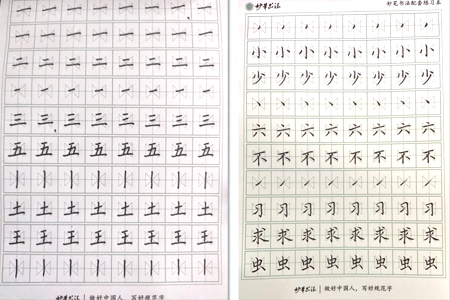 一一一一一一一一
一一一一一一一一
二二二二二二二二
一一一一一一一一
三三三三三三三三
五五五五五五五五
丨丨丨丨丨丨丨丨
土土土土土土土土
王王王王王王王王
丨丨丨丨丨丨丨丨
妙笔书法 | 做好中国人，写好规范字
妙笔书法 妙笔书法配套练习本
小小小小小小小小
少少少少少少少少
丶丶丶丶丶丶丶丶
六六六六六六六六
不不不不不不不不
㇀㇀㇀㇀㇀㇀㇀㇀
习习习习习习习习
求求求求求求求求
虫虫虫虫虫虫虫虫
妙笔书法 | 做好中国人，写好规范字